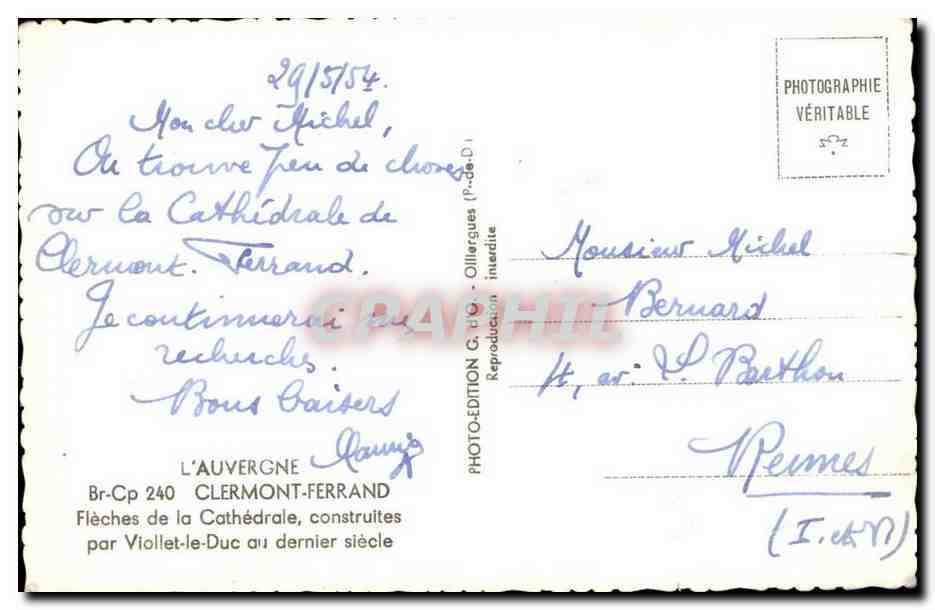 29/5/54.
Mon cher Michel,
On trouve peu de choses
sur la Cathédrale de
Clermont-Ferrand.
Je continuerai mes
recherches.
Bons baisers
L'AUVERGNE
Br-Cp 240 CLERMONT-FERRAND
Flèches de la Cathédrale, construites
par Viollet-le-Duc au dernier siècle
PHOTO-EDITION G. d'O. - Olliergues (P.-de-D.)
Reproduction interdite
PHOTOGRAPHIE
VÉRITABLE
Monsieur Michel
Bernard
4, av. L. Barthou
Rennes
(I. et V)
CPAPHIL